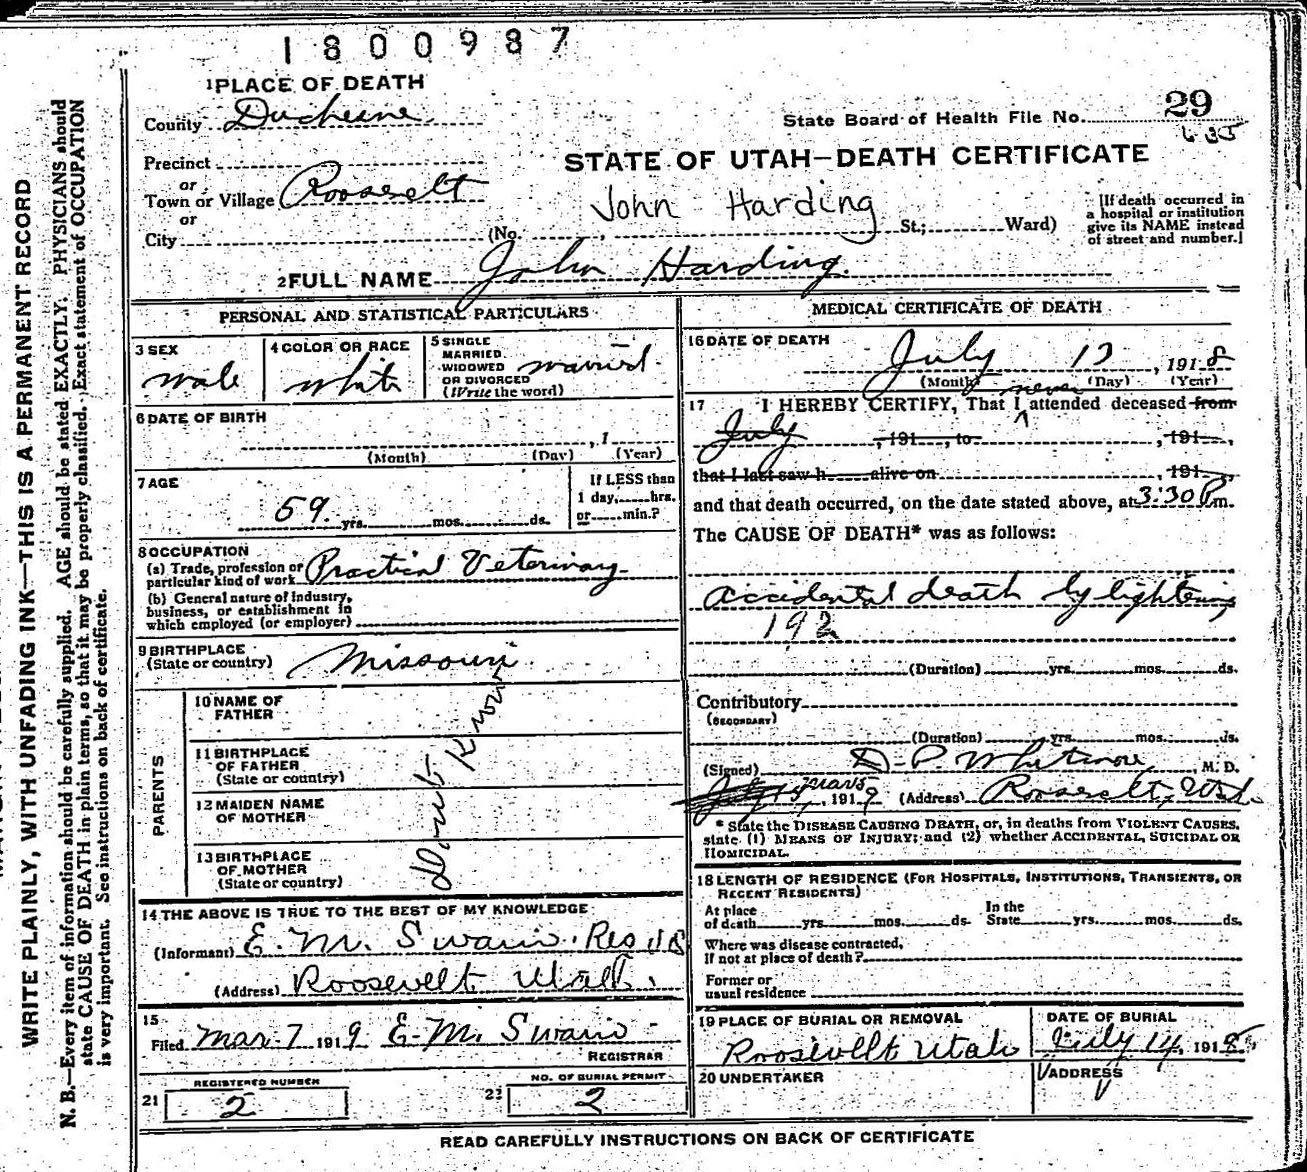 1800987
1 PLACE OF DEATH
County Duchesne
State Board of Health File No. 29
635
Precinct
or
Town or Village Roosevelt
or
City
STATE OF UTAH—DEATH CERTIFICATE
John Harding
(No. St.; Ward)
[If death occurred in
a hospital or institution
give its NAME instead
of street and number.]
2 FULL NAME John Harding.
PERSONAL AND STATISTICAL PARTICULARS
3 SEX
male
4 COLOR OR RACE
white
5 SINGLE
MARRIED.
WIDOWED
OR DIVORCED
(Write the word)
married.
6 DATE OF BIRTH
, 1
(Month) (Day) (Year)
7 AGE
59 yrs. mos. ds.
If LESS than
1 day, hrs.
or min.?
8 OCCUPATION
(a) Trade, profession or
particular kind of work Practical Veterinary
(b) General nature of industry,
business, or establishment in
which employed (or employer)
9 BIRTHPLACE
(State or country) Missouri
PARENTS
10 NAME OF
FATHER
11 BIRTHPLACE
OF FATHER
(State or country)
12 MAIDEN NAME
OF MOTHER
13 BIRTHPLACE
OF MOTHER
(State or country)
Dont Know
14 THE ABOVE IS TRUE TO THE BEST OF MY KNOWLEDGE
(Informant) E. M. Swain
(Address) Roosevelt Utah.
15
Filed Mar 7 1919 E. M. Swain
REGISTRAR
REGISTERED NUMBER
21 2
NO. OF BURIAL PERMIT
22 2
MEDICAL CERTIFICATE OF DEATH
16 DATE OF DEATH
July , 1918
(Month) (Day) (Year)
never
17 I HEREBY CERTIFY, That I attended deceased from
July , 191 , to , 191 ,
that I last saw h alive on , 191 ,
and that death occurred, on the date stated above, at 3:30 P m.
The CAUSE OF DEATH* was as follows:
Accidental death by lightening
192
(Duration) yrs. mos. ds.
Contributory
(SECONDARY)
(Duration) yrs. mos. ds.
(Signed) D. P. Whitmore, M. D.
, 1919 (Address) Roosevelt, Utah
* State the DISEASE CAUSING DEATH, or, in deaths from VIOLENT CAUSES,
state (1) MEANS OF INJURY; and (2) whether ACCIDENTAL, SUICIDAL OR
HOMICIDAL.
18 LENGTH OF RESIDENCE (FOR HOSPITALS, INSTITUTIONS, TRANSIENTS, OR
RECENT RESIDENTS)
At place
of death yrs. mos. ds.
In the
State yrs. mos. ds.
Where was disease contracted,
If not at place of death?
Former or
usual residence
19 PLACE OF BURIAL OR REMOVAL
Roosevelt Utah
DATE OF BURIAL
July 14, 1918
20 UNDERTAKER
ADDRESS
READ CAREFULLY INSTRUCTIONS ON BACK OF CERTIFICATE
WRITE PLAINLY, WITH UNFADING INK—THIS IS A PERMANENT RECORD
N. B.—Every item of information should be carefully supplied. AGE should be stated EXACTLY. PHYSICIANS should
state CAUSE OF DEATH in plain terms, so that it may be properly classified. Exact statement of OCCUPATION
is very important. See instructions on back of certificate.